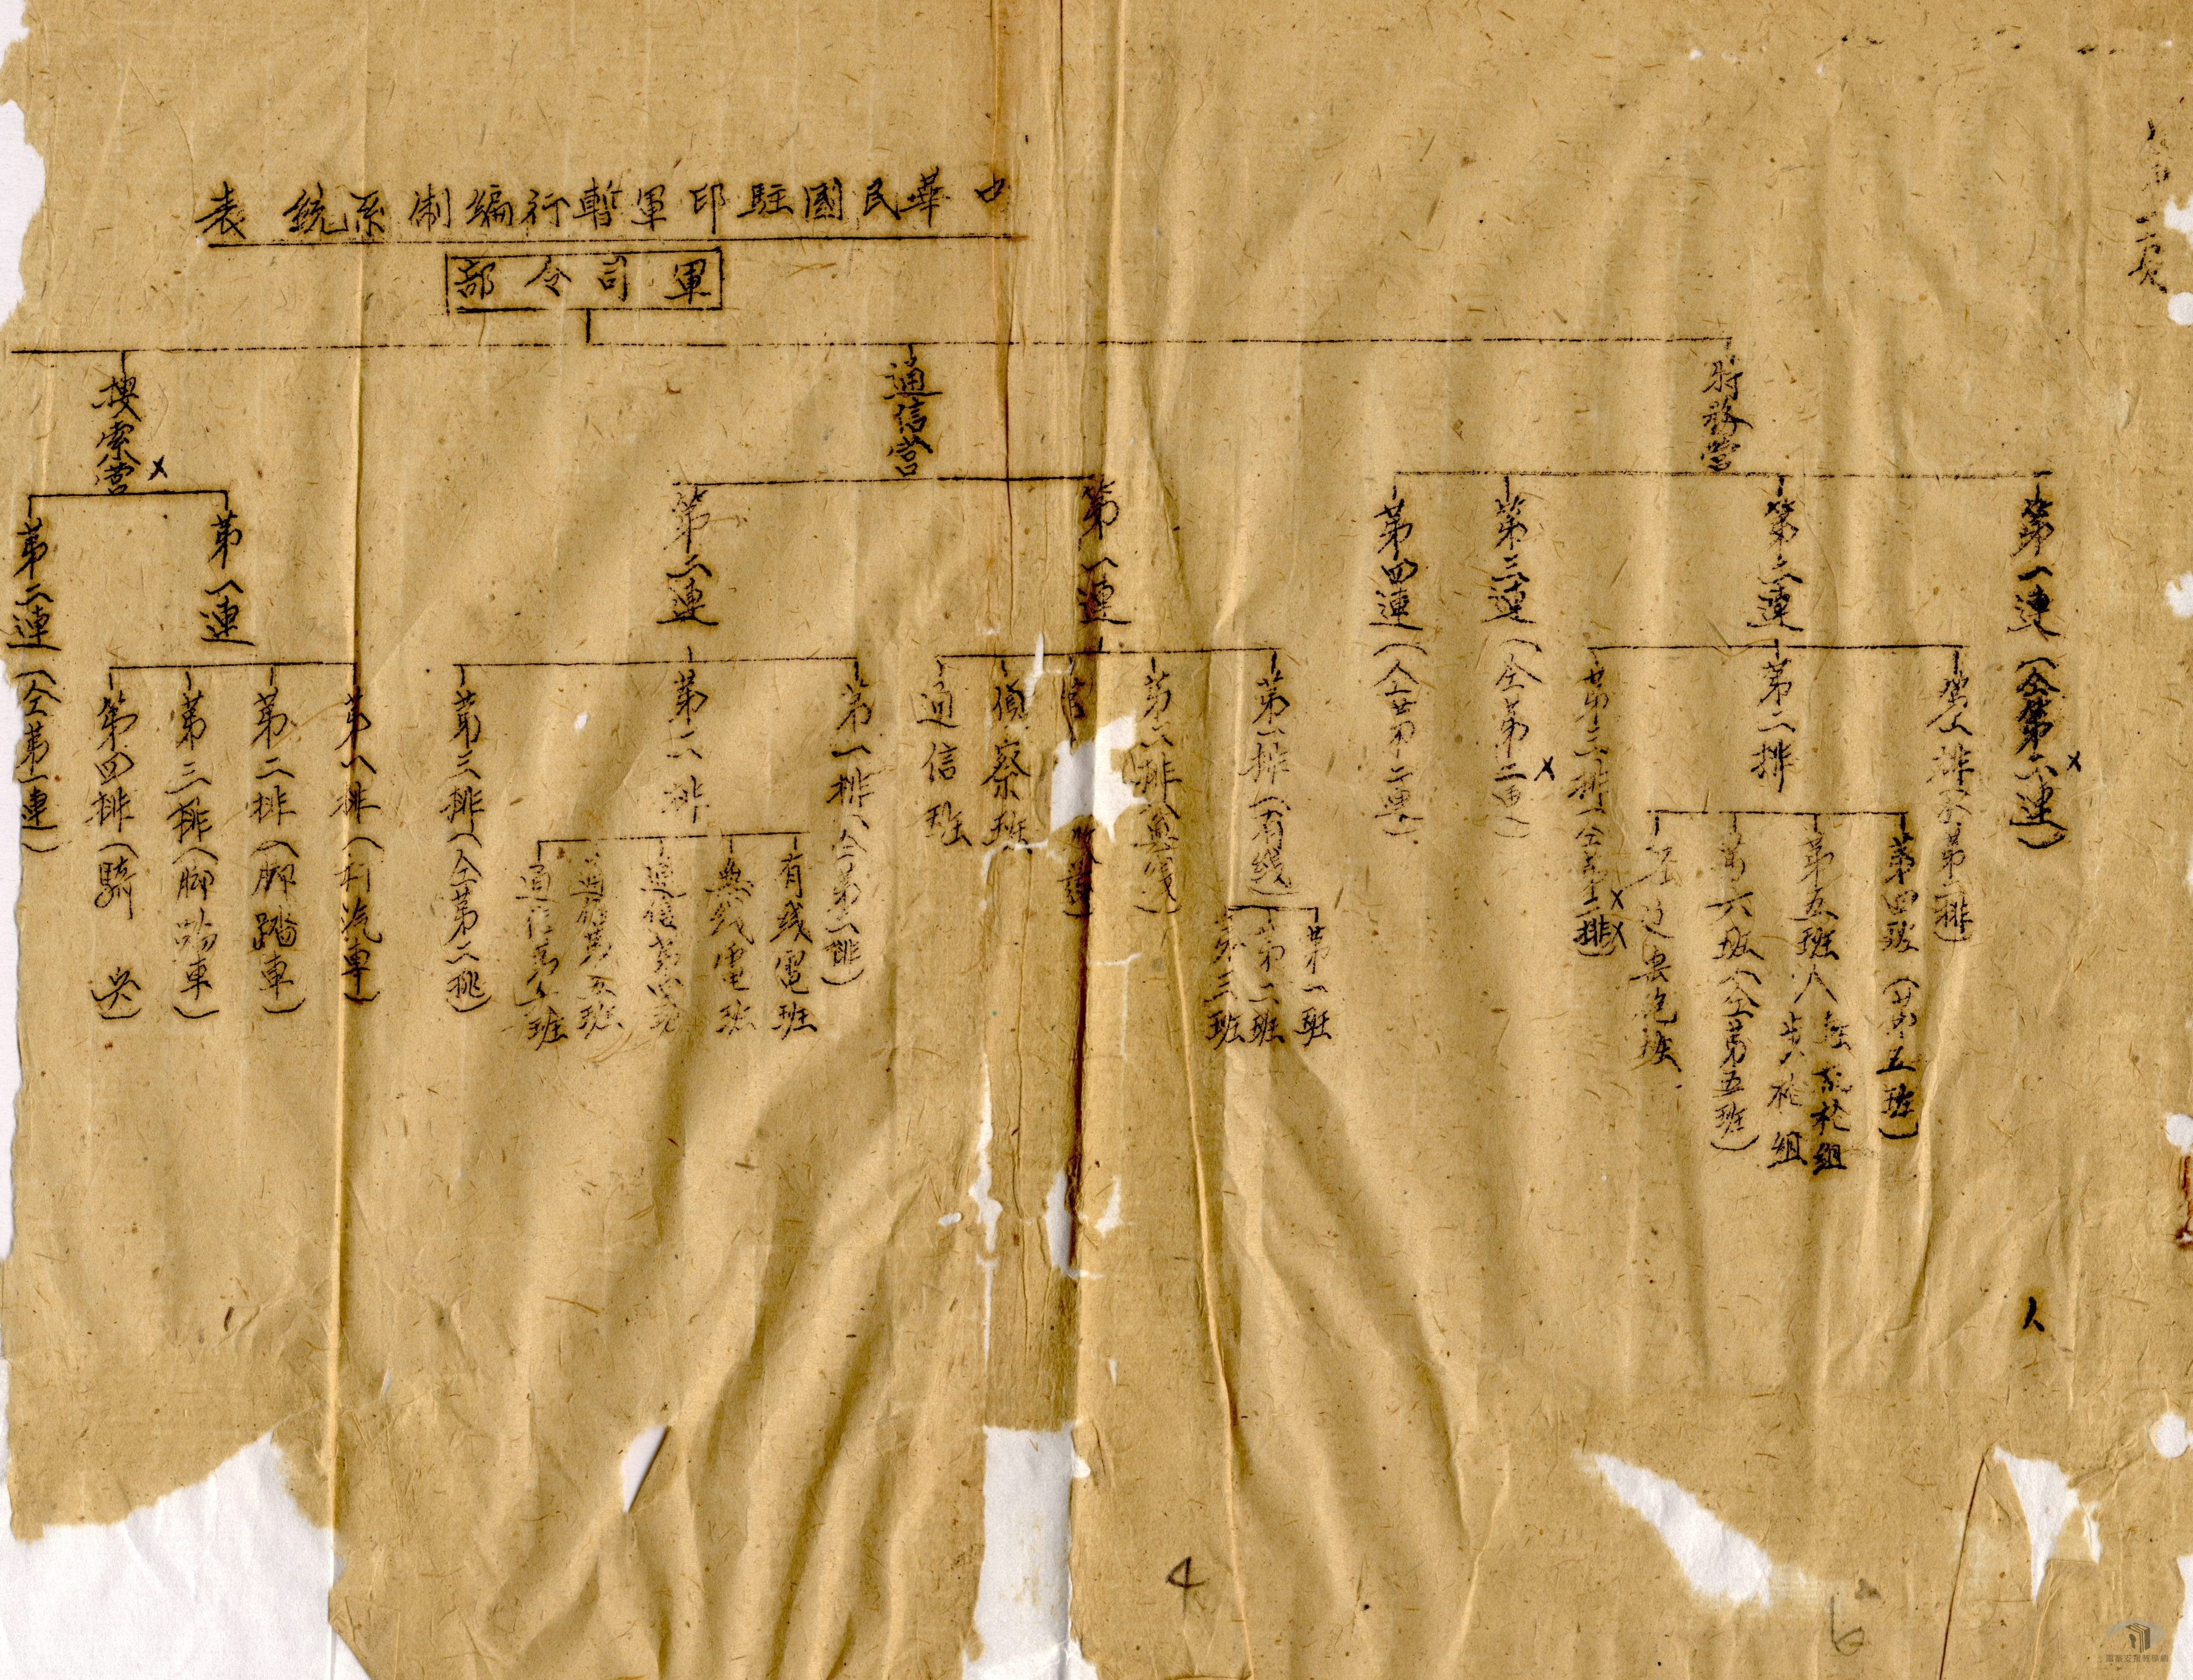 中華民國駐印軍暫行編制系統表
軍司令部
特務營
第一連（仝第二連）
第二連
第一排（仝第二排）
第二排
第四班（仝第五班）
第五班
組
步槍組
第六班（仝第五班）
第三排（仝第二排）
第三連（仝第二連）
第四連（仝第二連）
通信營
第一連
第一排（有綫）
第一班
第二班
第三班
第二排（無綫）
偵察班
通信班
第二連
第一排（仝第二排）
第二排
有綫電班
無綫電班
通信第四班
通信第五班
通信第六班
第三排（仝第二排）
搜索營
第一連
第一排（汽車）
第二排（脚踏車）
第三排（脚踏車）
第四排（騎兵）
第二連（仝第一連）
4